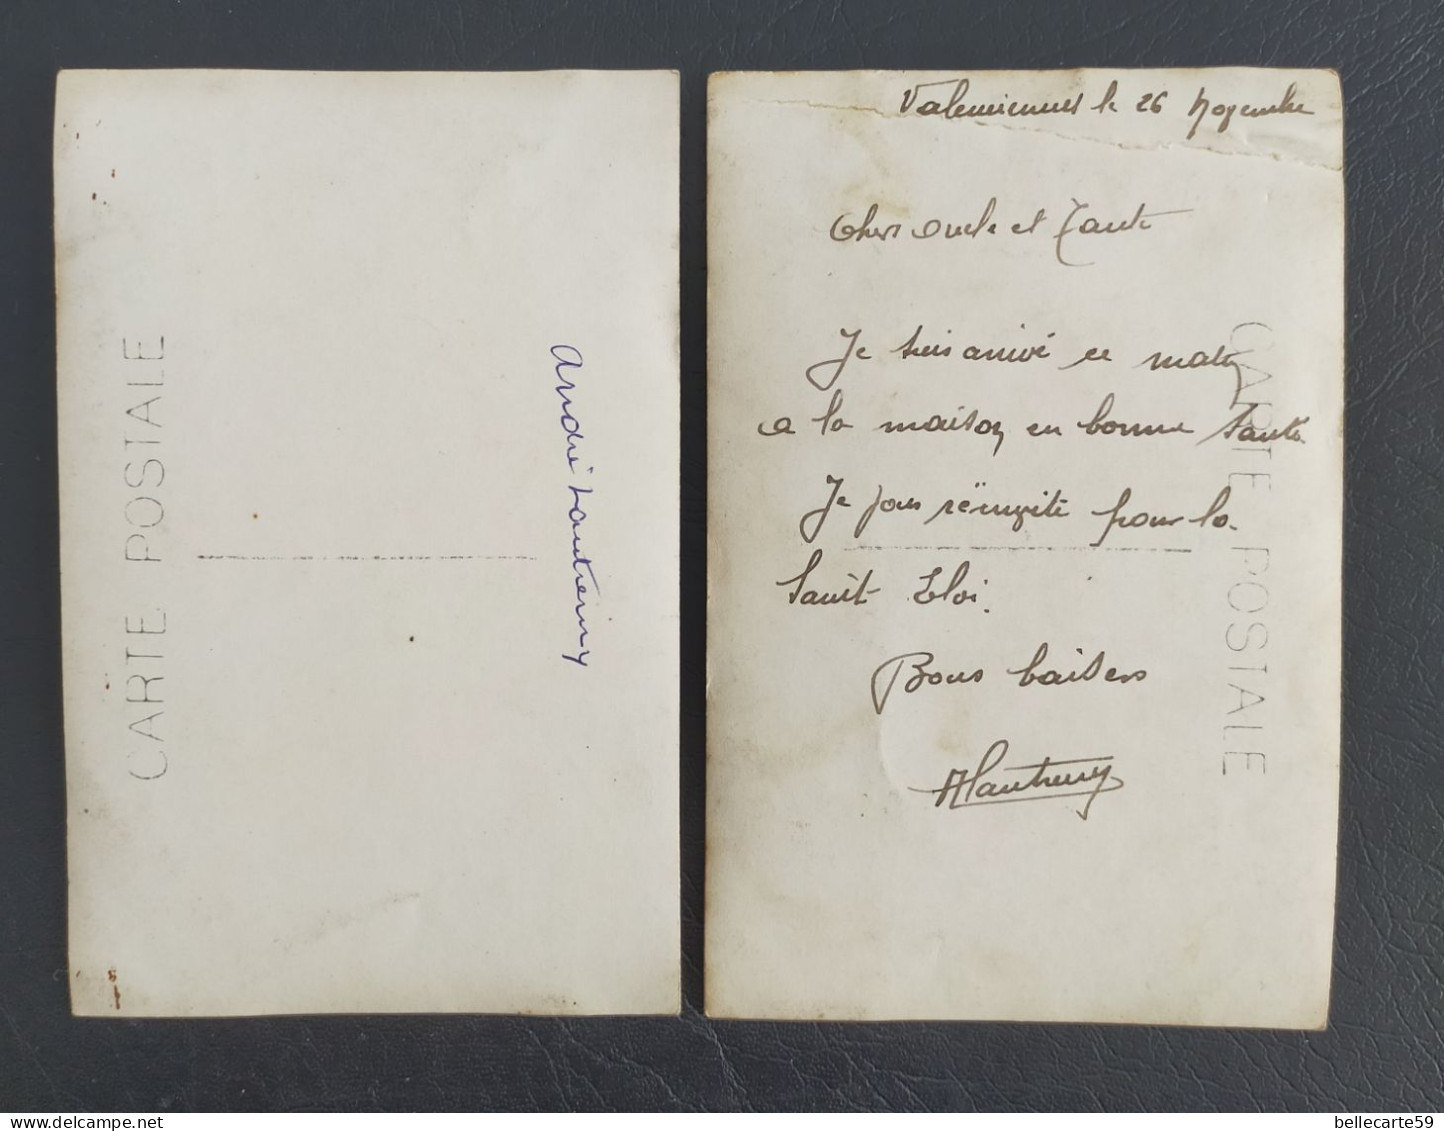 CARTE POSTALE
André Lautremy
Valenciennes le 26 Novembre
Chers Oncle et Tante
Je suis arrivé ce matin
a la maison en bonne santé
Je pour
pour la
Saint Eloi.
Bons baisers
ALautremy
CARTE POSTALE
bellecarte59